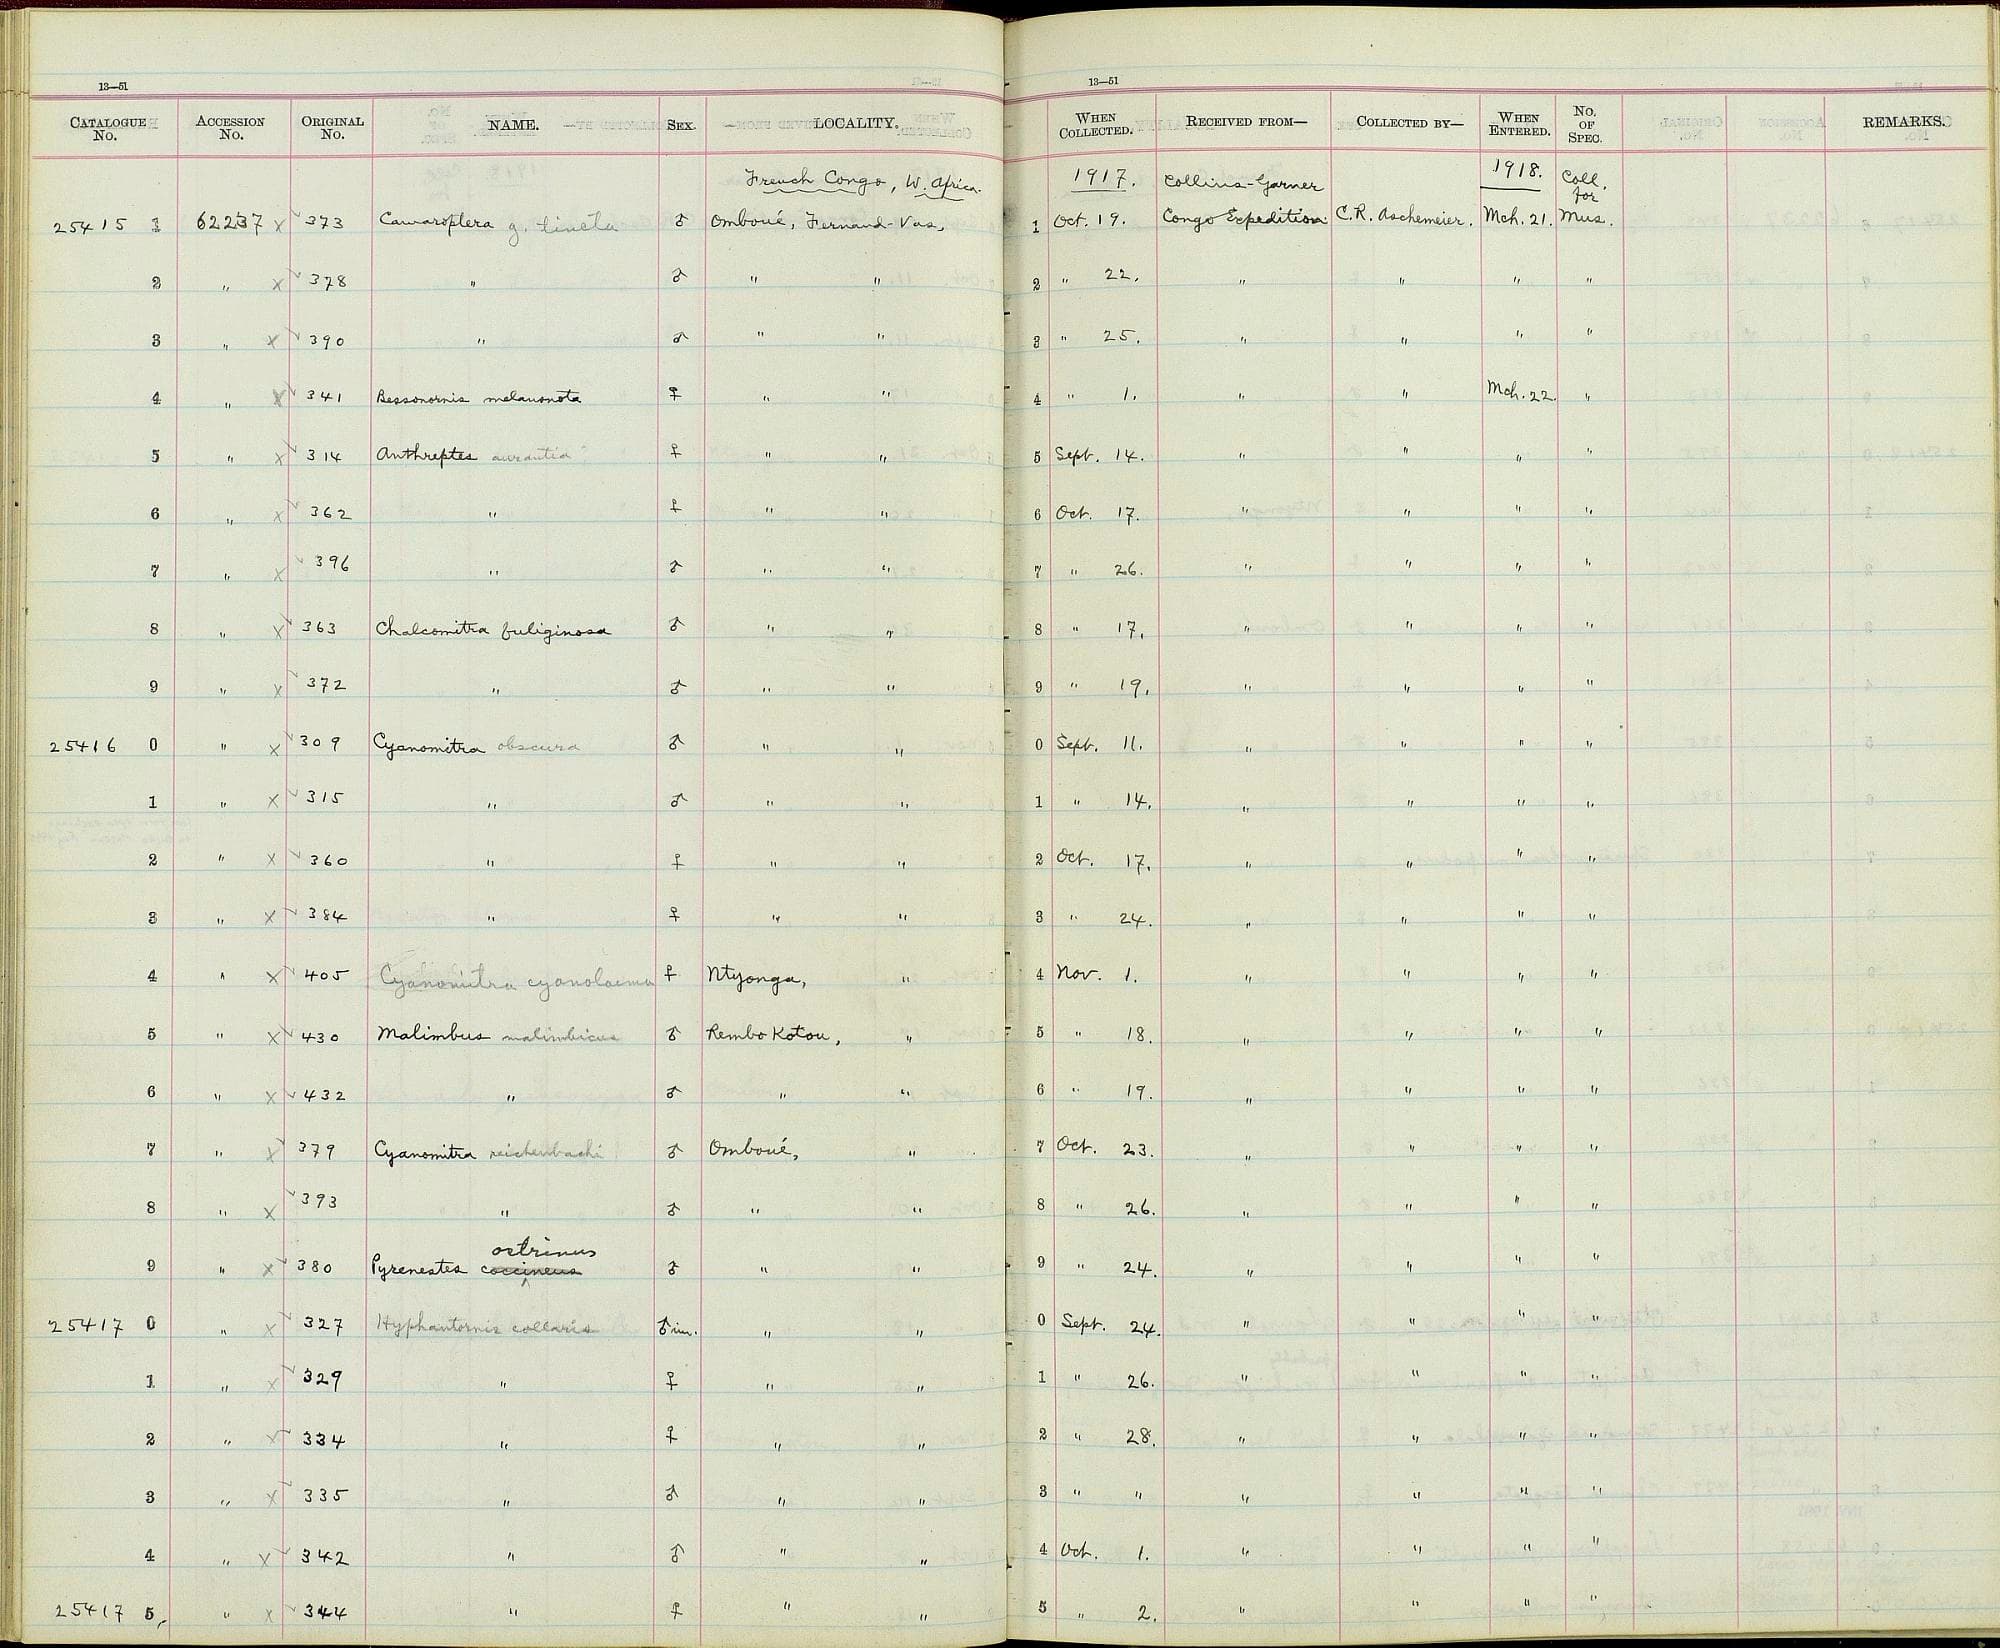 13—51 13—51
CATALOGUE No. ACCESSION No. ORIGINAL No. NAME. SEX. LOCALITY. WHEN COLLECTED. RECEIVED FROM— COLLECTED BY— WHEN ENTERED. No. OF SPEC. REMARKS.
French Congo, W. Africa. 1917. Collins-Garner 1918. Coll. for
25415 1 62237 x 373 Camaroptera g. tincta ♂ Omboué, Fernand-Vas, 1 Oct. 19. Congo Expedition C.R. Aschemeier. Mch. 21. Mus.
2 " x 378 " ♂ " " 2 " 22. " " " "
3 " x 390 " ♂ " " 3 " 25. " " " "
4 " x 341 Bessonornis melanonota ♀ " " 4 " 1. " " Mch. 22. "
5 " x 314 Anthreptes aurantia ♀ " " 5 Sept. 14. " " " "
6 " x 362 " ♀ " " 6 Oct. 17. " " " "
7 " x 396 " ♂ " " 7 " 26. " " " "
8 " x 363 Chalcomitra fuliginosa ♂ " " 8 " 17. " " " "
9 " x 372 " ♂ " " 9 " 19. " " " "
25416 0 " x 309 Cyanomitra obscura ♂ " " 0 Sept. 11. " " " "
1 " x 315 " ♂ " " 1 " 14. " " " "
2 " x 360 " ♀ " " 2 Oct. 17. " " " "
3 " x 384 " ♀ " " 3 " 24. " " " "
4 " x 405 Cyanomitra cyanolaema ♀ Ntyonga, " 4 Nov. 1. " " " "
5 " x 430 Malimbus malimbicus ♂ Rembo Kotou, " 5 " 18. " " " "
6 " x 432 " ♂ " " 6 " 19. " " " "
7 " x 379 Cyanomitra reichenbachi ♂ Omboué, " 7 Oct. 23. " " " "
8 " x 393 " ♂ " " 8 " 26. " " " "
ostrinus
9 " x 380 Pyrenestes coccineus ♂ " " 9 " 24. " " " "
25417 0 " x 327 Hyphantornis collaris ♂ im. " " 0 Sept. 24. " " " "
1 " x 329 " ♀ " " 1 " 26. " " " "
2 " x 334 " ♀ " " 2 " 28. " " " "
3 " x 335 " ♂ " " 3 " " " " " "
4 " x 342 " ♂ " " 4 Oct. 1. " " " "
25417 5, " x 344 " ♀ " " 5 " 2. " " " "